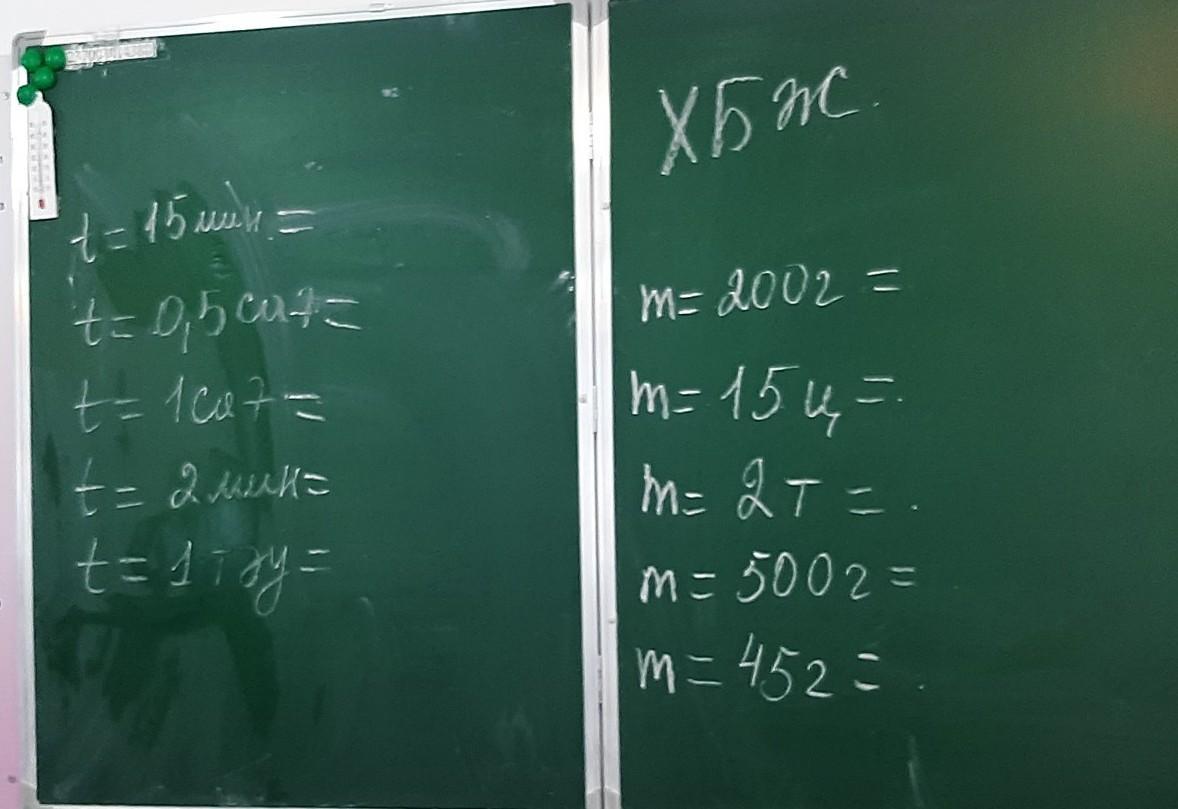 t = 15 мин. =
t = 0,5 сағ =
t = 1 сағ =
t = 2 мин =
t = 1 тәу =
ХБЖ.
m = 200г =
m = 15 ц =.
m = 2 т = .
m = 500г =
m = 45г = .